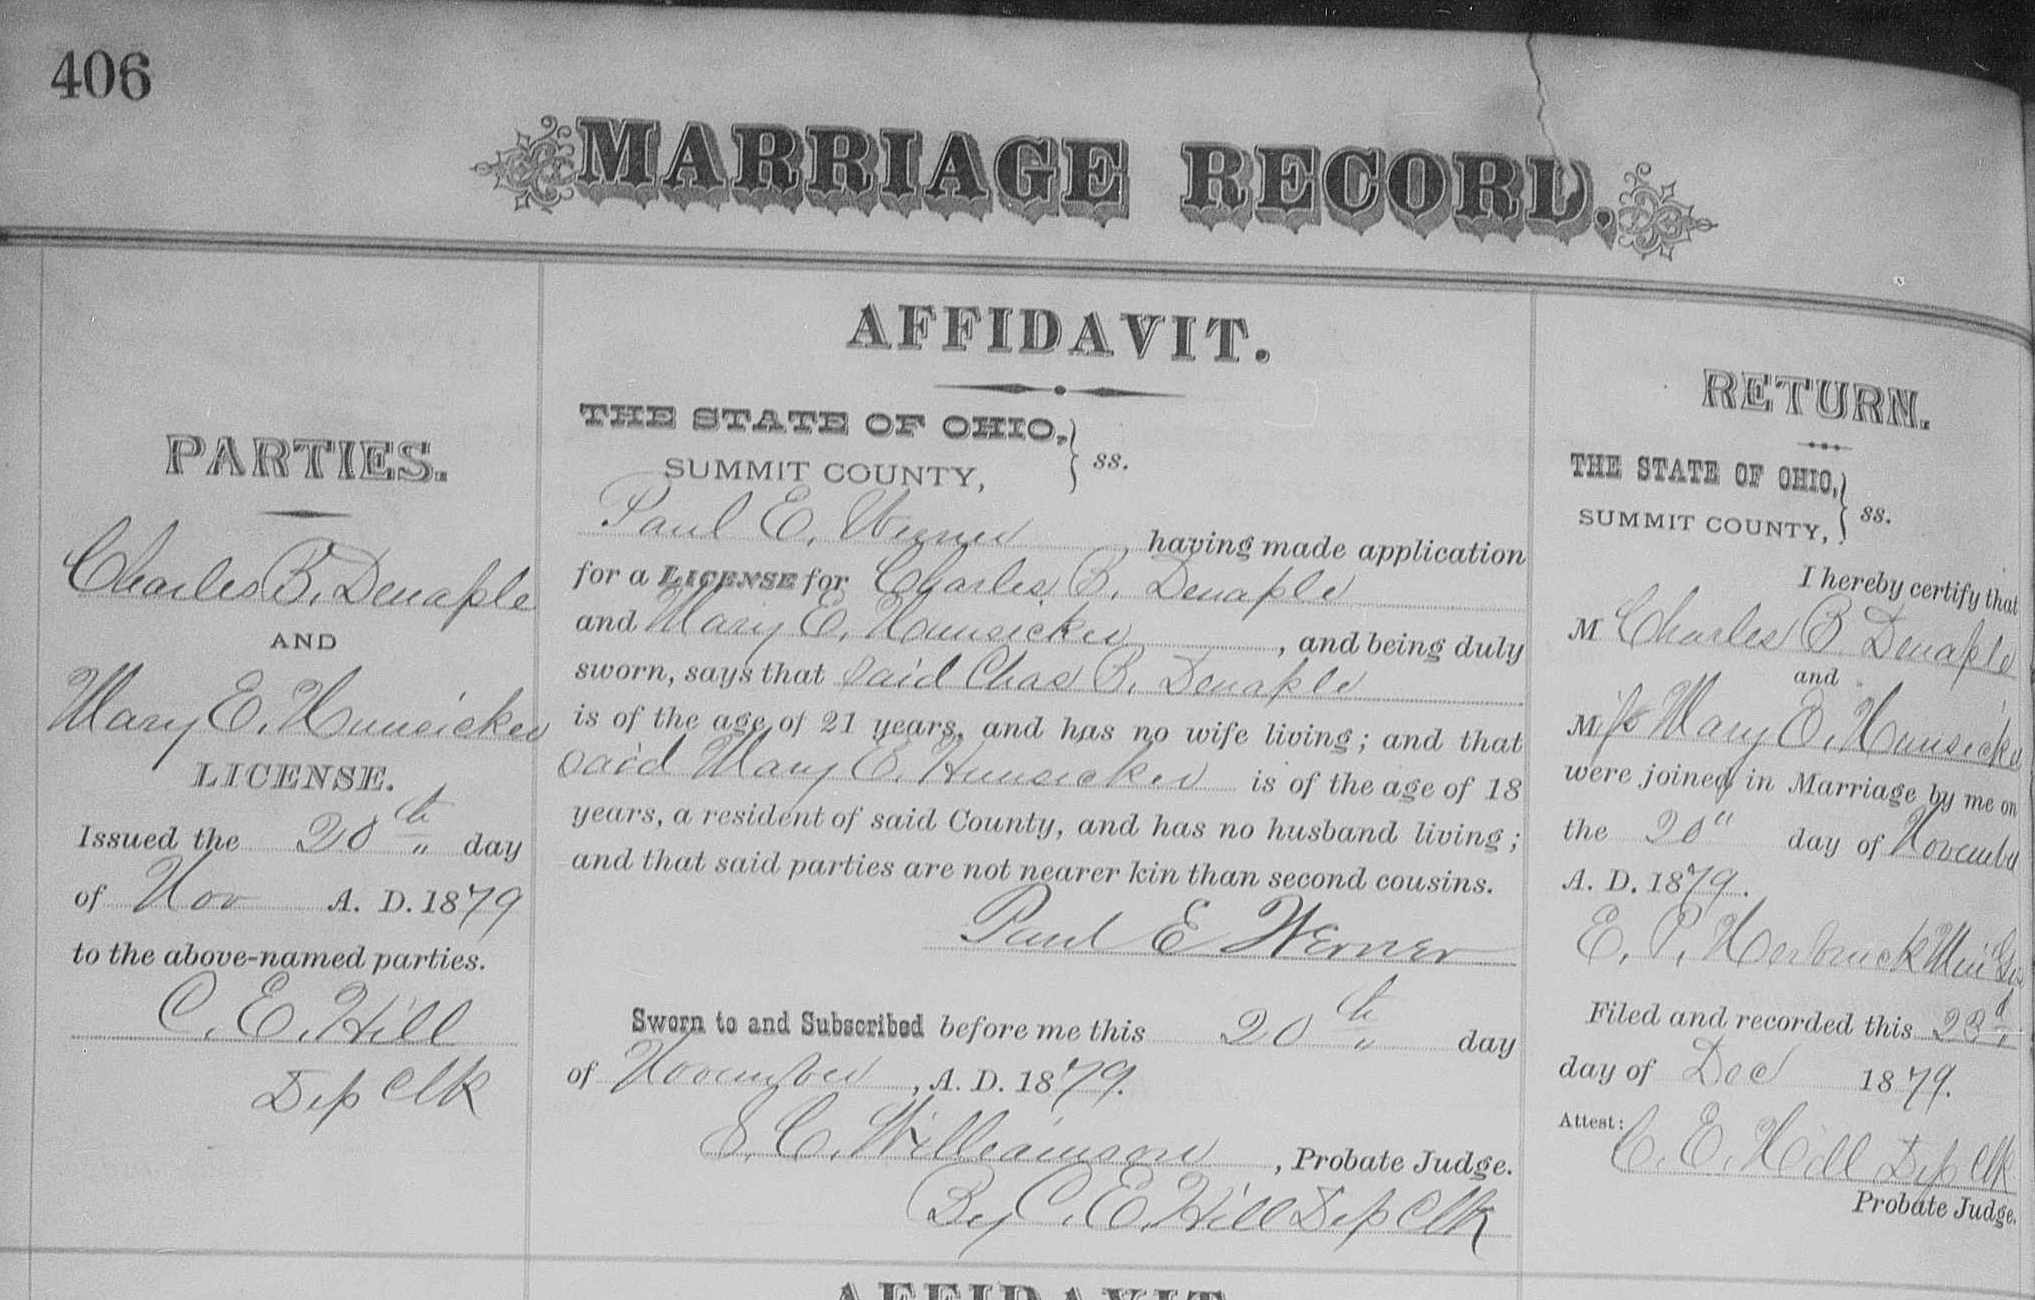 406
MARRIAGE RECORD.
PARTIES.
Charles B. Denaple
AND
Mary E. Hunsicker
LICENSE.
Issued the 20th day
of Nov A. D. 1879
to the above-named parties.
C. E. Hill
Dep Clk
AFFIDAVIT.
THE STATE OF OHIO,
SUMMIT COUNTY, } ss.
Paul E. Werner having made application
for a LICENSE for Charles B. Denaple
and Mary E. Hunsicker, and being duly
sworn, says that said Chas B. Denaple
is of the age of 21 years, and has no wife living; and that
said Mary E. Hunsicker is of the age of 18
years, a resident of said County, and has no husband living;
and that said parties are not nearer kin than second cousins.
Paul E Werner
Sworn to and Subscribed before me this 20th day
of November, A. D. 1879.
S. C. Williamson, Probate Judge.
By C. E. Hill Dep Clk
RETURN.
THE STATE OF OHIO,
SUMMIT COUNTY, } ss.
I hereby certify that
M Charles B Denaple
and
Miss Mary E. Hunsicker
were joined in Marriage by me on
the 20" day of November
A. D. 1879.
E. P. Herbruck Min
Filed and recorded this 23d
day of Dec 1879.
Attest: C. E. Hill Dep Clk
Probate Judge.
AFFIDAVIT